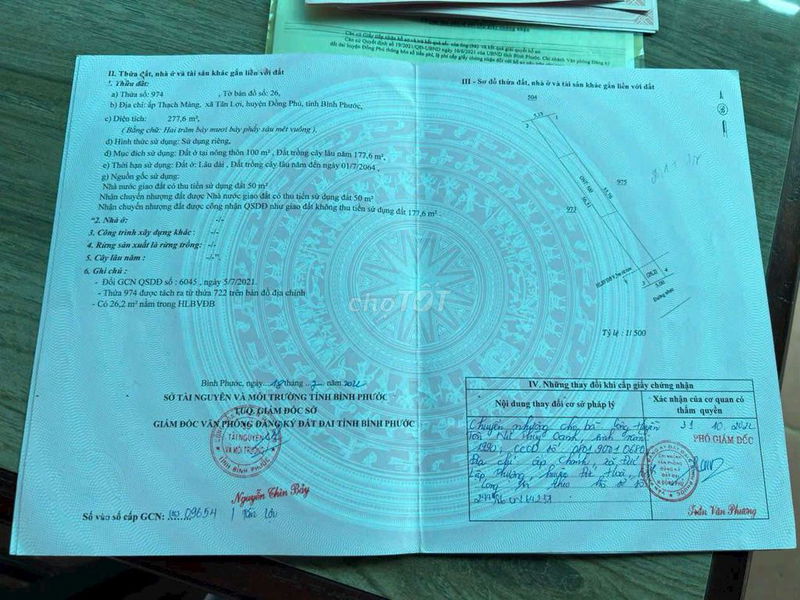 Căn cứ Quyết định số 19/2021/QĐ-UBND
II. Thửa đất, nhà ở và tài sản khác gắn liền với đất
1. Thửa đất:
a) Thửa số: 974 , Tờ bản đồ số: 26,
b) Địa chỉ: ấp Thạch Màng, xã Tân Lợi, huyện Đồng Phú, tỉnh Bình Phước,
c) Diện tích: 277,6 m²,
( Bằng chữ: Hai trăm bảy mươi bảy phẩy sáu mét vuông ),
d) Hình thức sử dụng: Sử dụng riêng,
đ) Mục đích sử dụng: Đất ở tại nông thôn 100 m² , Đất trồng cây lâu năm 177,6 m²,
e) Thời hạn sử dụng: Đất ở: Lâu dài , Đất trồng cây lâu năm đến ngày 01/7/2064 ,
g) Nguồn gốc sử dụng:
Nhà nước giao đất có thu tiền sử dụng đất 50 m²
Nhận chuyển nhượng đất được Nhà nước giao đất có thu tiền sử dụng đất 50 m²
Nhận chuyển nhượng đất được công nhận QSDĐ như giao đất không thu tiền sử dụng đất 177,6 m²
"2. Nhà ở: -/-
3. Công trình xây dựng khác : -/-
4. Rừng sản xuất là rừng trồng: -/-
5. Cây lâu năm: -/-".
6. Ghi chú :
- Đổi GCN QSDĐ số : 6045 , ngày 5/7/2021.
- Thửa 974 được tách ra từ thửa 722 trên bản đồ địa chính
- Có 26,2 m² nằm trong HLBVĐB
Bình Phước, ngày 18 tháng 7 năm 2022
SỞ TÀI NGUYÊN VÀ MÔI TRƯỜNG TỈNH BÌNH PHƯỚC
TUQ. GIÁM ĐỐC SỞ
GIÁM ĐỐC VĂN PHÒNG ĐĂNG KÝ ĐẤT ĐAI TỈNH BÌNH PHƯỚC
TÀI NGUYÊN
VÀ MÔI TRƯỜNG
TỈNH BÌNH PHƯỚC
Nguyễn Chín Bảy
Số vào sổ cấp GCN: 09654
Tân Lợi
III - Sơ đồ thửa đất, nhà ở và tài sản khác gắn liền với đất
504
975
973
5,00
Đường nhựa
Tỷ lệ : 1/500
choTỐT
IV. Những thay đổi khi cấp giấy chứng nhận
Nội dung thay đổi cơ sở pháp lý
Xác nhận của cơ quan có
thẩm quyền
Chuyển nhượng cho bà
sinh năm
1990, CCCD số
Địa chỉ: ấp Chánh, xã Đức
Lập Thượng, huyện Đức Hoà,
Long An theo hồ sơ số
31 10 2022
PHÓ GIÁM ĐỐC
Trần Văn Phương